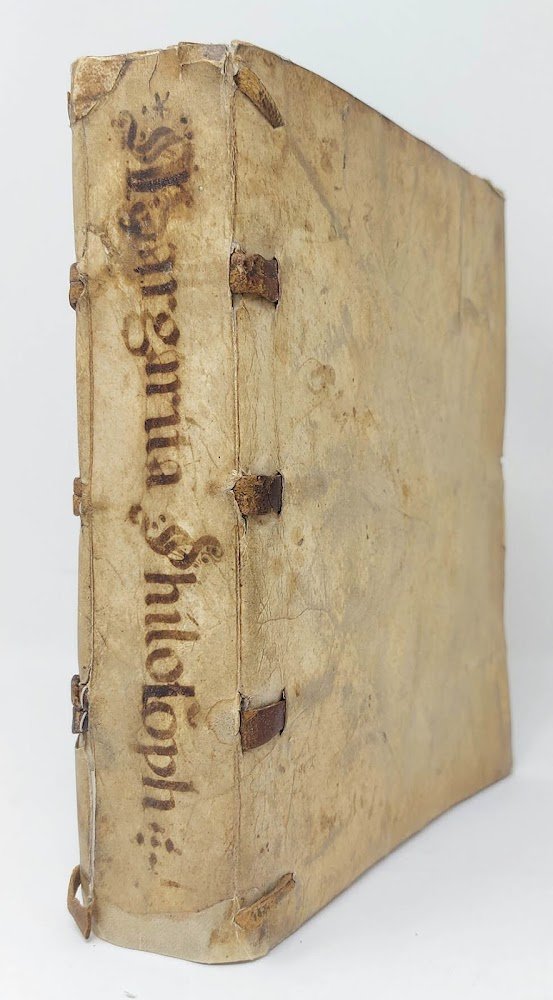 Margarita Philoſoph: